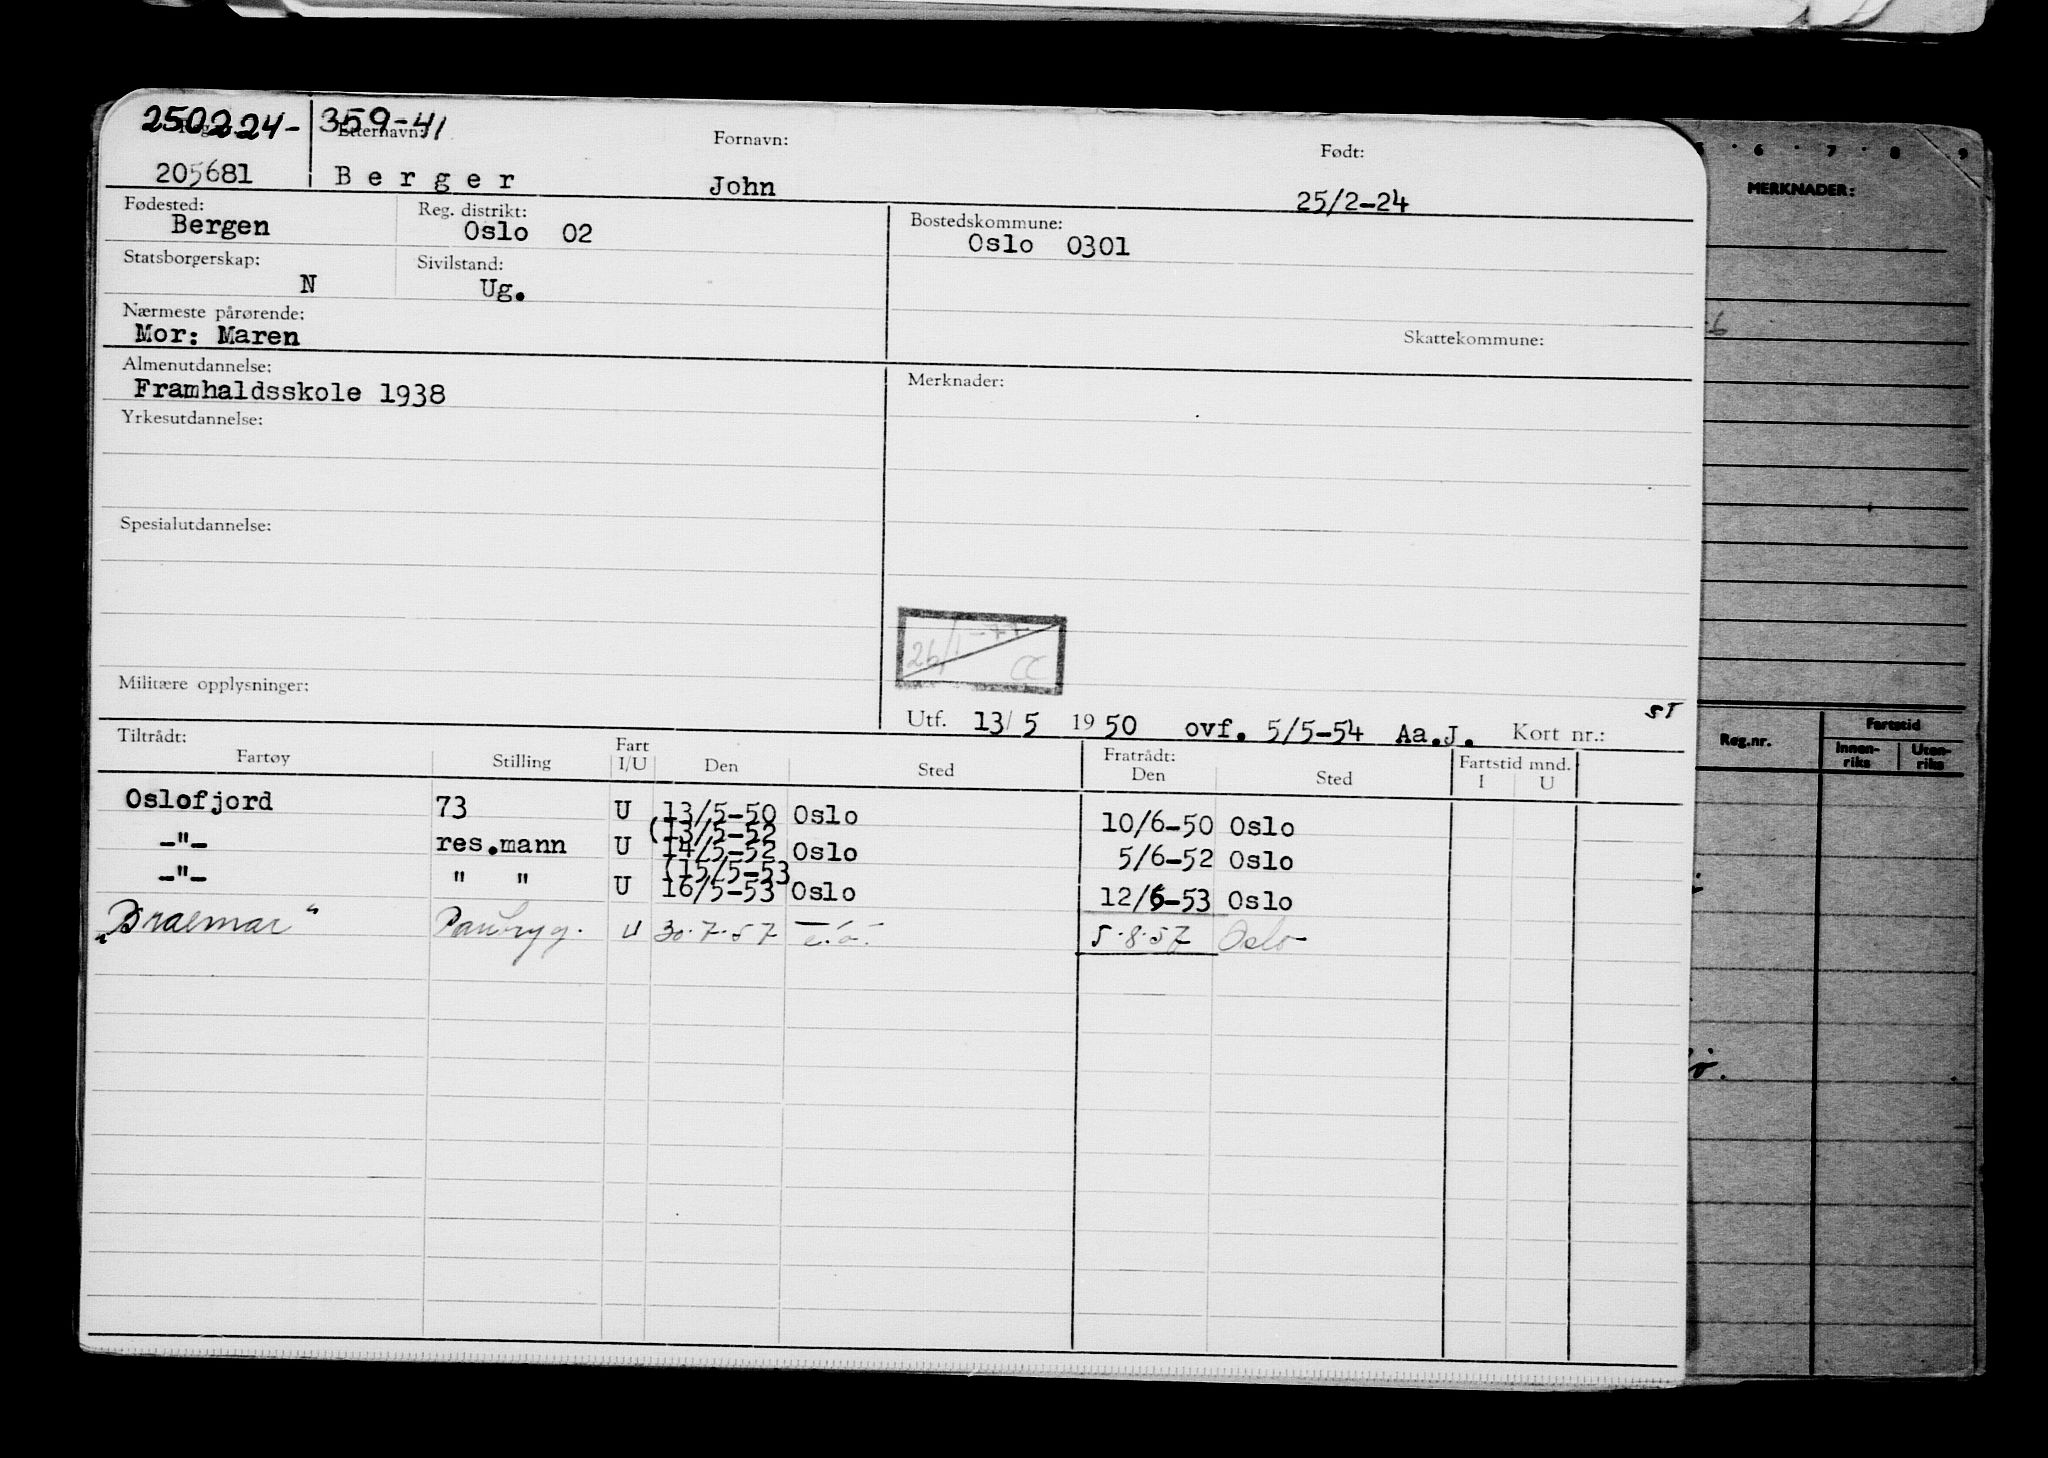 250224- 359-41
Etternavn: Fornavn: Født:
205681 Berger John 25/2-24
Fødested: Reg. distrikt: Bostedskommune:
Bergen Oslo 02 Oslo 0301
Statsborgerskap: Sivilstand:
N Ug.
Nærmeste pårørende: Skattekommune:
Mor: Maren
Almenutdannelse: Merknader:
Framhaldsskole 1938
Yrkesutdannelse:
Spesialutdannelse:
26/1-77
CC
Militære opplysninger:
ST
Utf. 13/5 1950 ovf. 5/5-54 Aa.J. Kort nr.:
Tiltrådt: Fratrådt: Fartstid mnd.
Fartøy Stilling Fart I/U Den Sted Den Sted I U
Oslofjord 73 U 13/5-50 Oslo 10/6-50 Oslo
(13/5-52
-"- res.mann U 14/5-52 Oslo 5/6-52 Oslo
(15/5-53
-"- " " U 16/5-53 Oslo 12/6-53 Oslo
"Braemar" U 30.7.57 5.8.57 Oslo
5 6 7 8 9
MERKNADER:
Reg.nr. Fartstid
Innen-riks Uten-riks